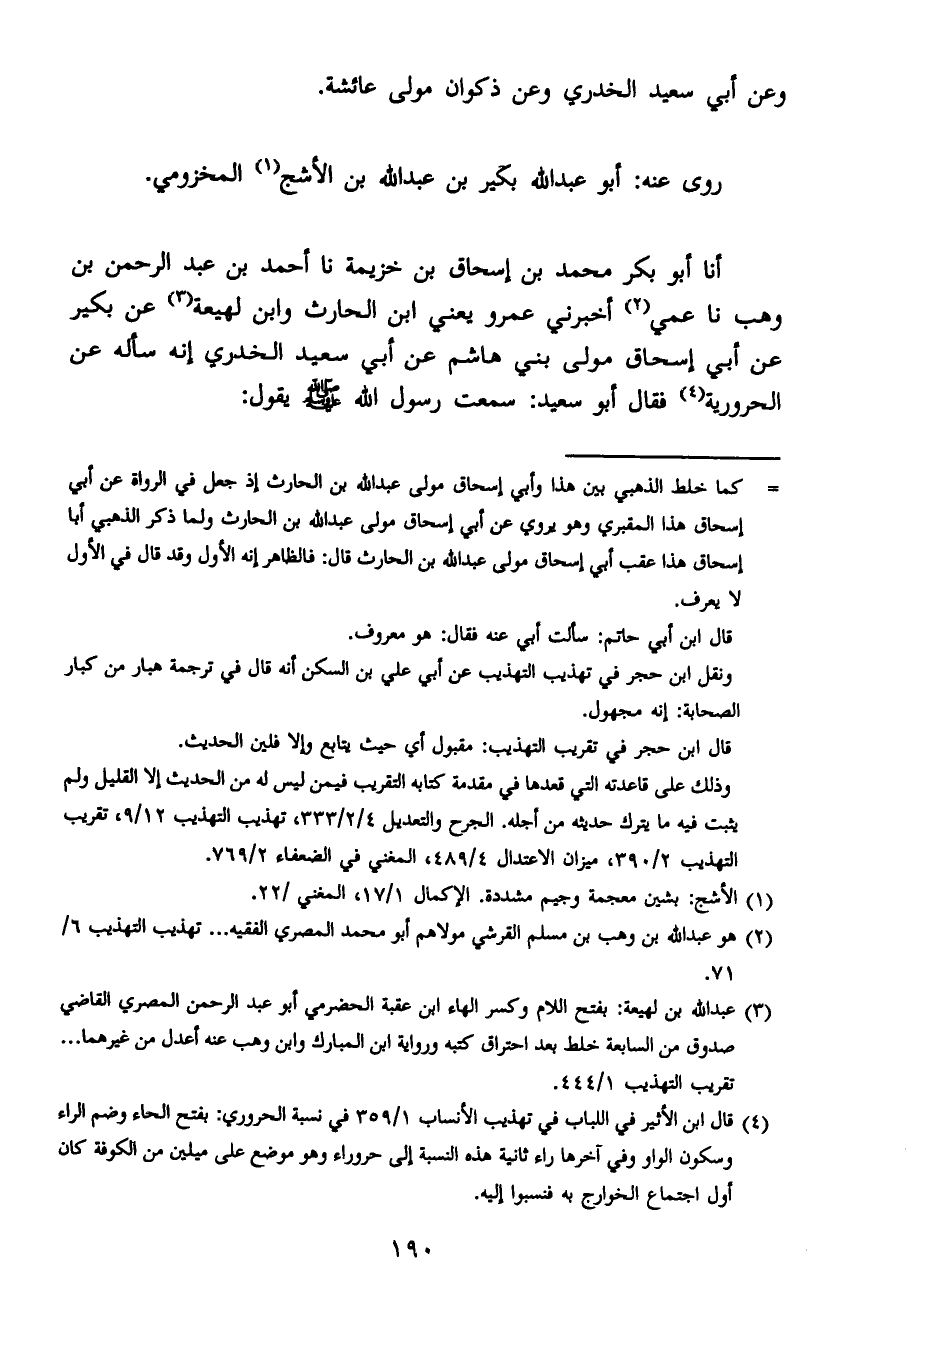 وعن أبي سعيد الخدري وعن ذكوان مولى عائشة.
روى عنه: أبو عبدالله بكير بن عبدالله بن الأشج(١) المخزومي.
أنا أبو بكر محمد بن إسحاق بن خزيمة نا أحمد بن عبد الرحمن بن
وهب نا عمي(٢) أخبرني عمرو يعني ابن الحارث وابن لهيعة(٣) عن بكير
عن أبي إسحاق مولى بني هاشم عن أبي سعيد الخدري إنه سأله عن
الحرورية(٤) فقال أبو سعيد: سمعت رسول الله ﷺ يقول:
= كما خلط الذهبي بين هذا وأبي إسحاق مولى عبدالله بن الحارث إذ جعل في الرواة عن أبي
إسحاق هذا المقبري وهو يروي عن أبي إسحاق مولى عبدالله بن الحارث ولما ذكر الذهبي أبا
إسحاق هذا عقب أبي إسحاق مولى عبدالله بن الحارث قال: فالظاهر إنه الأول وقد قال في الأول
لا يعرف.
قال ابن أبي حاتم: سألت أبي عنه فقال: هو معروف.
ونقل ابن حجر في تهذيب التهذيب عن أبي علي بن السكن أنه قال في ترجمة هبار من كبار
الصحابة: إنه مجهول.
قال ابن حجر في تقريب التهذيب: مقبول أي حيث يتابع وإلا فلين الحديث.
وذلك على قاعدته التي قعدها في مقدمة كتابه التقريب فيمن ليس له من الحديث إلا القليل ولم
يثبت فيه ما يترك حديثه من أجله. الجرح والتعديل ٣٣٣/٢/٤، تهذيب التهذيب ٩/١٢، تقريب
التهذيب ٣٩٠/٢، ميزان الاعتدال ٤٨٩/٤، المغني في الضعفاء ٧٦٩/٢.
(١) الأشج: بشين معجمة وجيم مشددة. الإكمال ١٧/١، المغني /٢٢.
(٢) هو عبدالله بن وهب بن مسلم القرشي مولاهم أبو محمد المصري الفقيه... تهذيب التهذيب ٦/
٧١.
(٣) عبدالله بن لهيعة: بفتح اللام وكسر الهاء ابن عقبة الحضرمي أبو عبد الرحمن المصري القاضي
صدوق من السابعة خلط بعد احتراق كتبه ورواية ابن المبارك وابن وهب عنه أعدل من غيرهما...
تقريب التهذيب ٤٤٤/١.
(٤) قال ابن الأثير في اللباب في تهذيب الأنساب ٣٥٩/١ في نسبة الحروري: بفتح الحاء وضم الراء
وسكون الواو وفي آخرها راء ثانية هذه النسبة إلى حروراء وهو موضع على ميلين من الكوفة كان
أول اجتماع الخوارج به فنسبوا إليه.
١٩٠